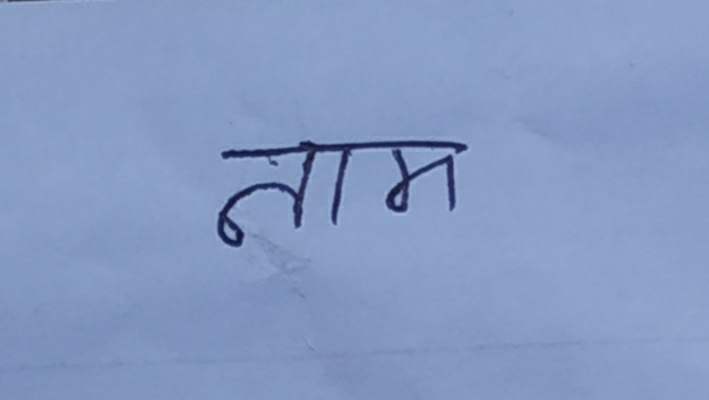 नाम